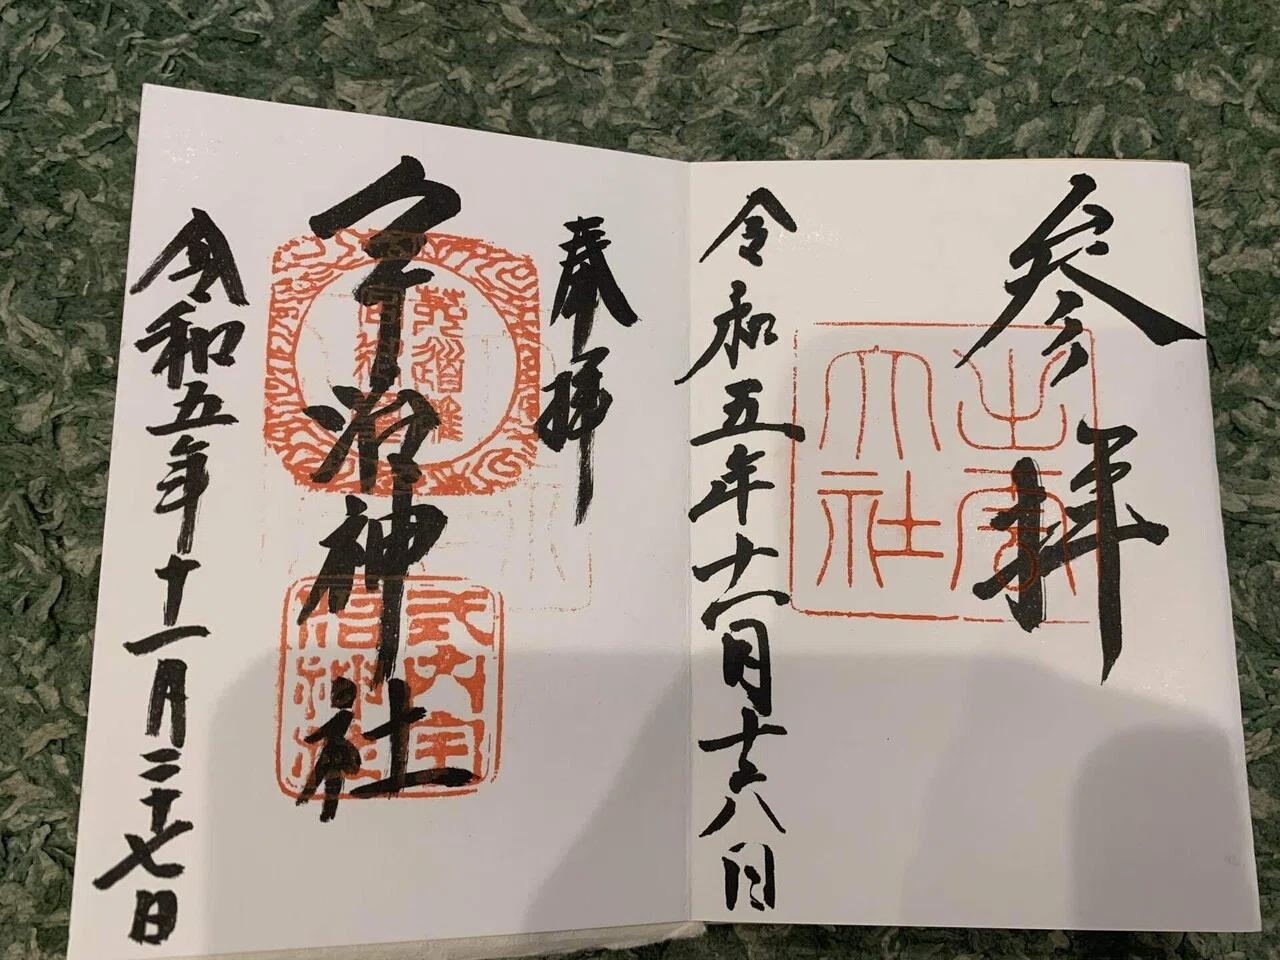 参拝
出雲
大社
令和五年十一月十六日
奉拝
宇治神社
式内宇
治神社
令和五年十一月二十七日